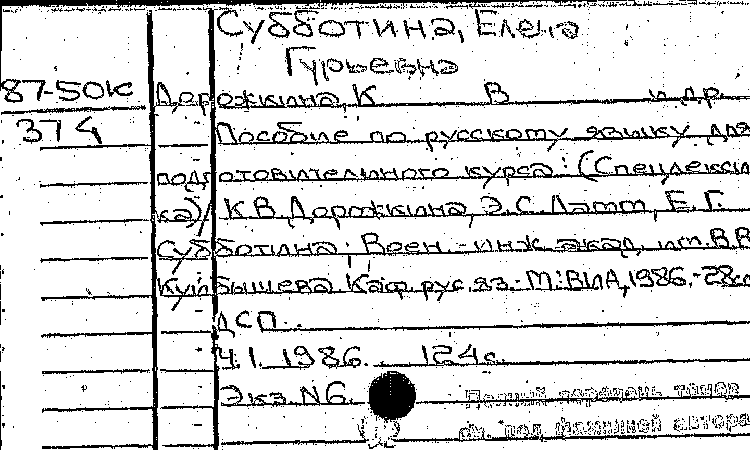 Субботина, Елена
Гурьевна
87-50к Дорожкина, К В и др.
374 Пособие по русскому языку для
подготовительного курса: (Спецлекси
ка)/ К.В. Дорожкина, Э.С. Латт, Е.Г.
Субботина; Воен.-инж. акад. им. В.В.
Куйбышева. Каф. рус. яз.- М.: ВИА, 1986.-28см
ДСП.
Ч.1. 1986. 124с.
Экз. N6.
Полный перечень томов
см. под фамилией автора